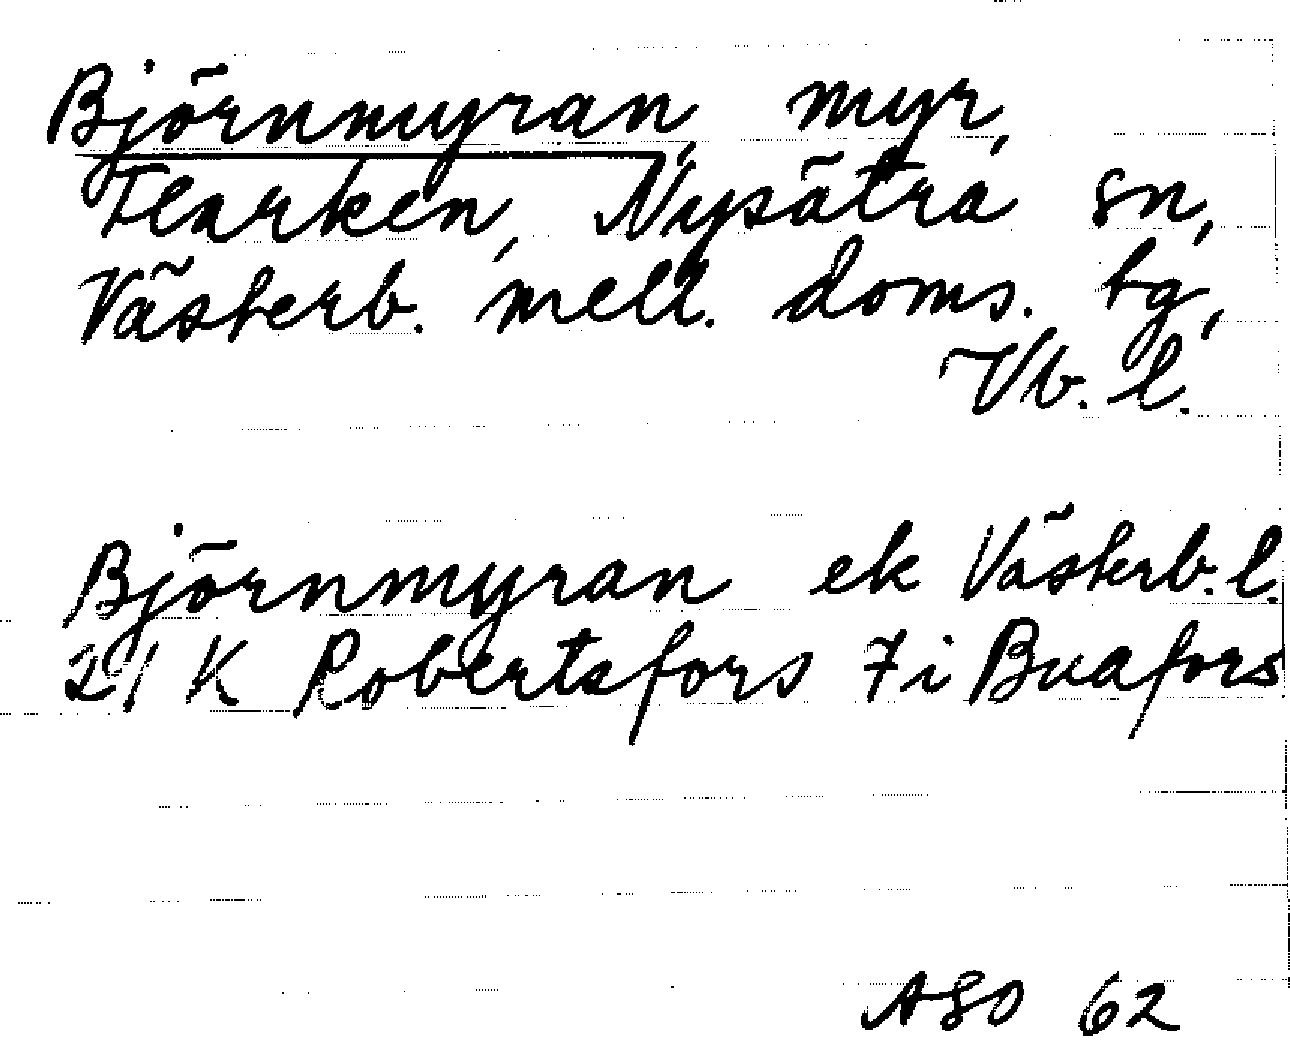 Björnmyran, myr,
Flarken, Nysätra sn,
Västerb. mell. doms. tg,
Vb. l.
Björnmyran ek Västerb. l.
21 K Robertsfors 7 i Buafors
ASO 62